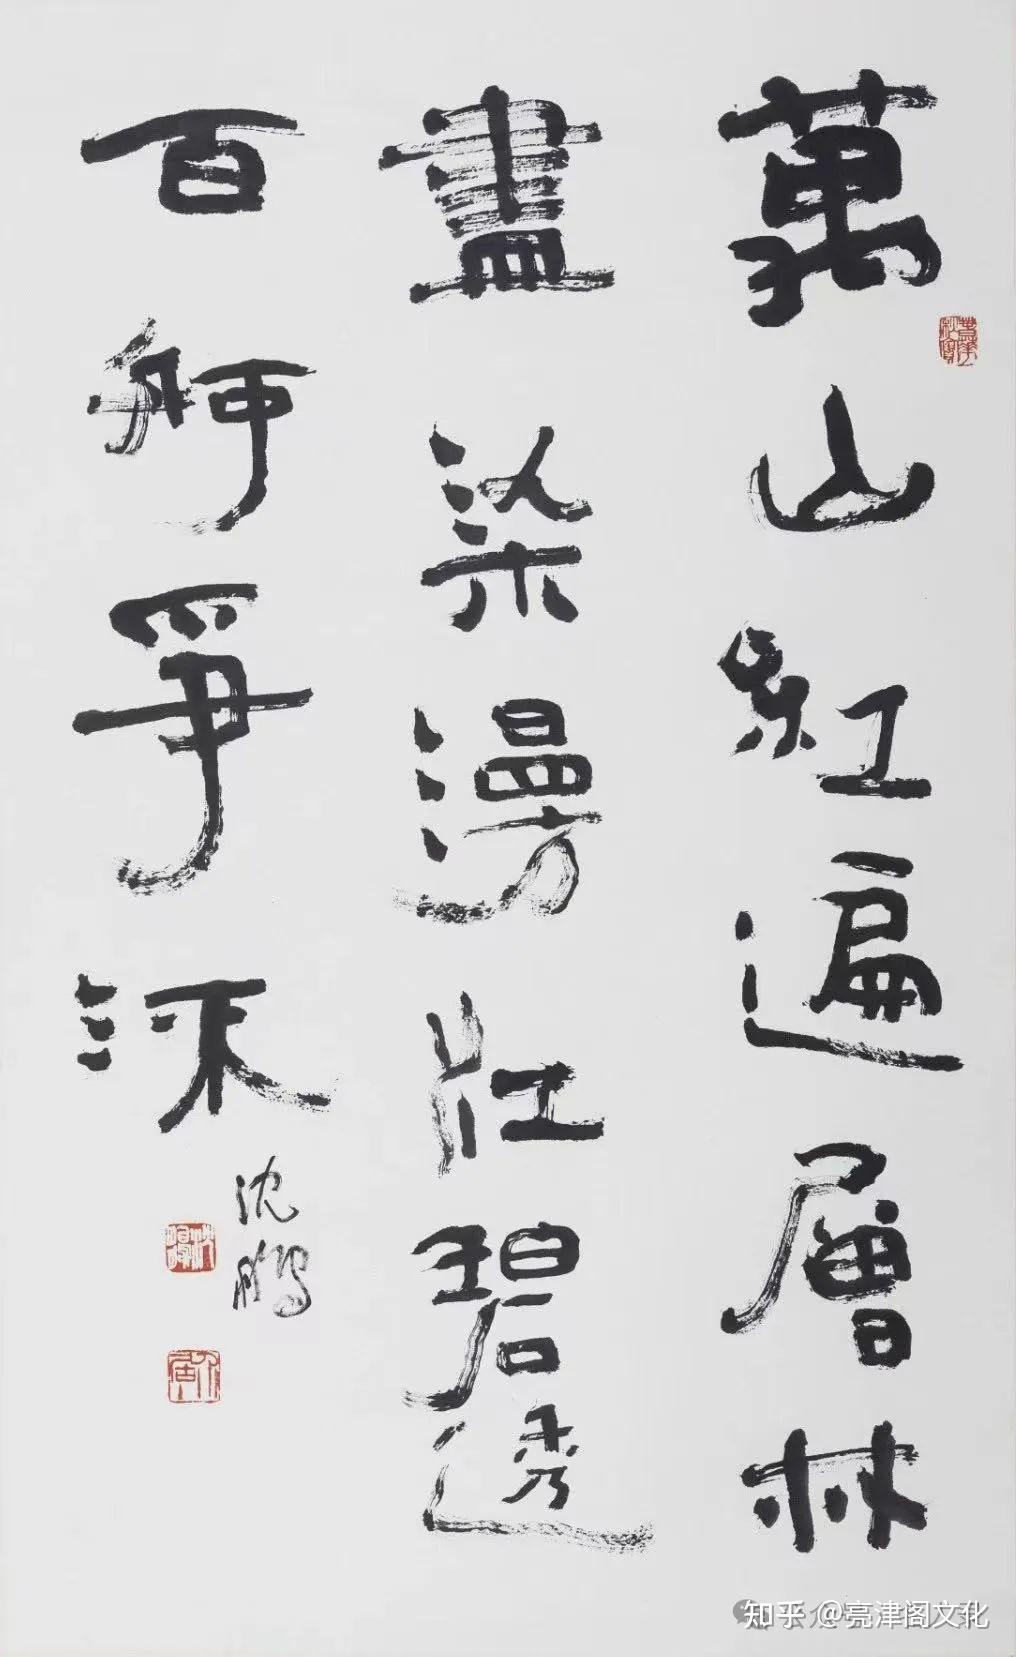 萬山紅遍層林
盡染漫江碧透
百舸爭流
沈鵬
沈鵬
介居
知乎 @亮津阁文化